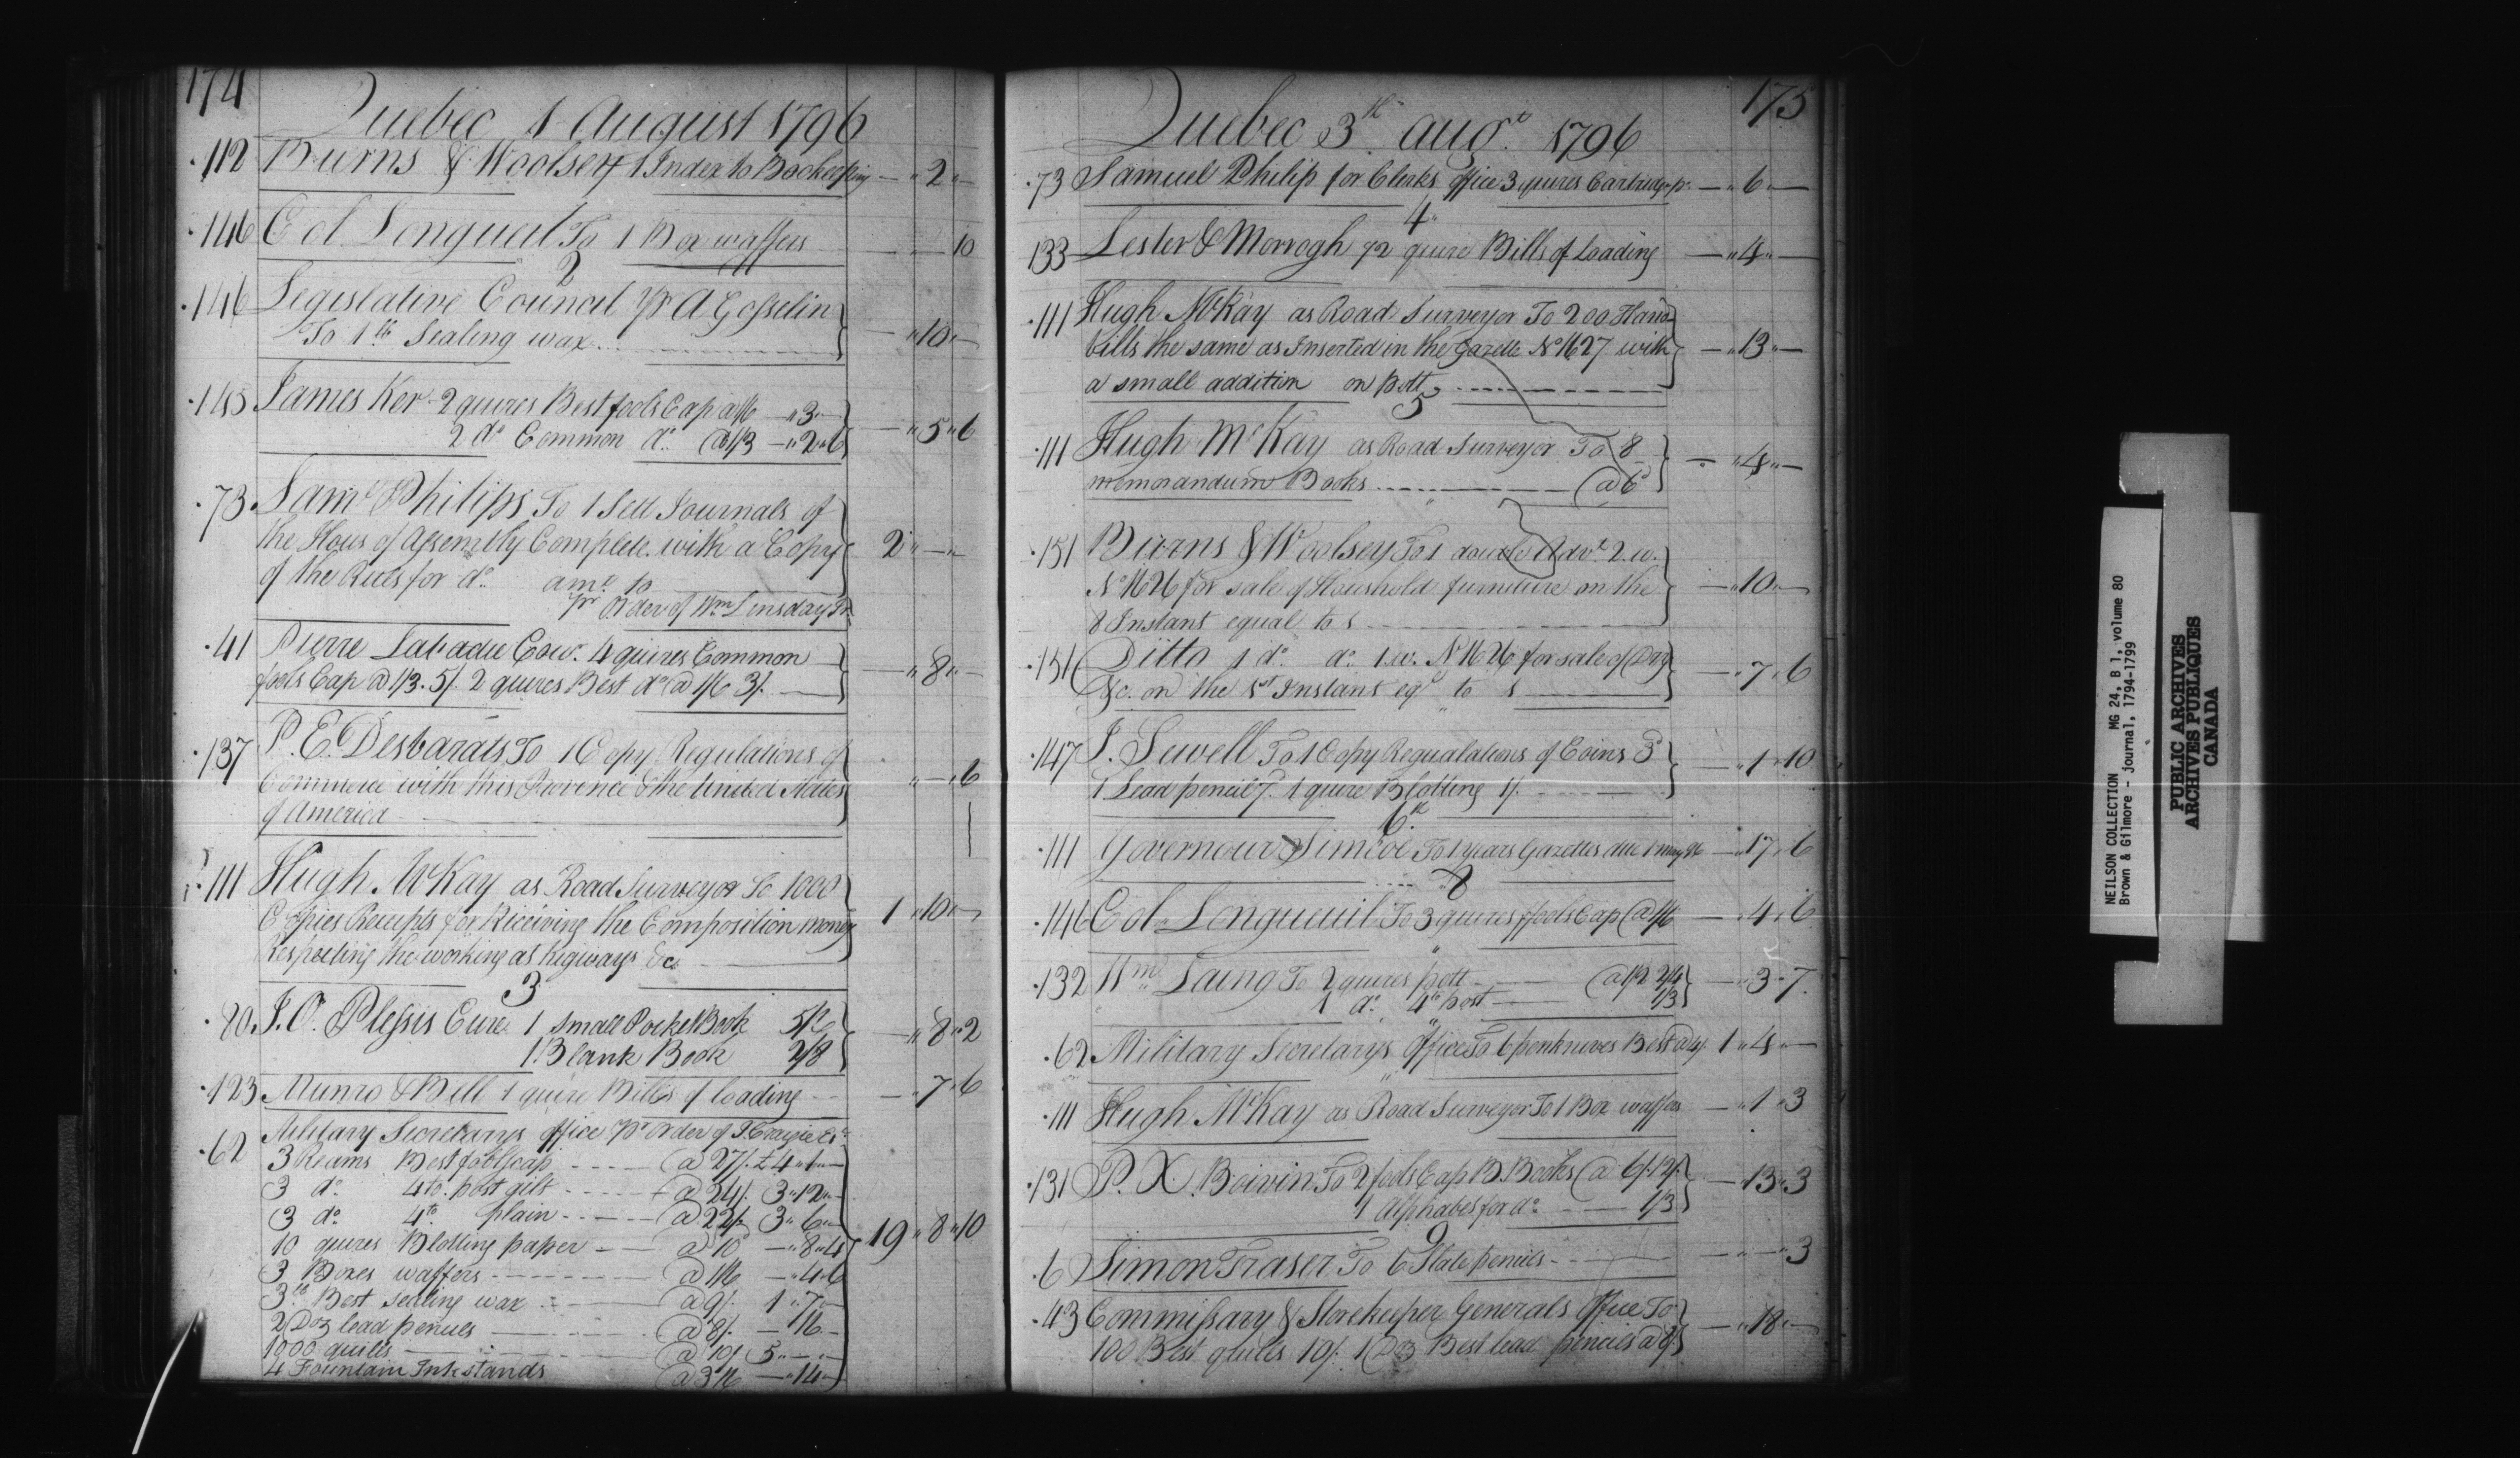 174
Quebec 1 August 1796
112 Burns & Woolsey 1 Index to Bookeeping — " 2 " —
146 Col. Longueil To 1 Box waffers — " — 10
2
146 Legislative Council pr A Gosselin
To 1 lb Sealing wax — " 10 " —
145 James Ker 2 quires Best fools Cap a 1/6 — " 3 " —
2 do Common do @ 1/3 — " 2 " 6 — " 5 " 6
73 Saml Philips To 1 Sett Journals of
the Hous of Assembly Complete with a Copy 2 " — " —
of the Ruls for do amt to
pr Order of Wm Linsday Jr
41 Pierre Labadie Cow. 4 quires Common
fools Cap @ 1/3. 5/. 2 quires Best do @ 1/6 3/. — " 8 " —
137 P. E. Desbarats To 1 Copy Regulations of
Commerce with this Provence & the United States " — " 6
of America
111 Hugh McKay as Road Surveyor To 1000
Copies Receipts for Receiving the Composition money 1 " 10 " —
Respecting the working at higways &c
3
80 J. O. Plessis Cure 1 small Pocket Book 5/6
1 Blank Book 2/8 — " 8 " 2
123 Munro & Bell 1 quire Bills of loading — " 7 " 6
62 Military Secretarys office pr Order of J. Craigie Esr
3 Reams Best foolscap @ 27/. £4 " 1 " —
3 do 4to. post gilt @ 24/. 3 " 12 " —
3 do 4to plain @ 22/. 3 " 6 " —
10 quires Blotting paper @ 10d — " 8 " 4 19 " 8 " 10
3 Boxes waffers @ 1/6 — " 4 " 6
3 lb Best sealing wax @ 9/. 1 " 7 " —
2 Doz lead pencils @ 8/. — " 16 —
1000 quills @ 10/. 5 " — " —
4 Fountain Ink stands @ 3/6 — " 14 —
175
Quebec 3th augt. 1796
73 Samuel Philip for Clerks office 3 quires Cartridge pr. — " 6 " —
4
133 Lester & Morrogh 1/2 quire Bills of loading — " 4 " —
111 Hugh McKay as Road Surveyor To 200 Hand
bills the same as Inserted in the Gazette No 1627 with — " 13 " —
a small addition on Pott
5
111 Hugh McKay as Road Surveyor To 8
memorandum Books @ 6d — " 4 " —
151 Burns & Woolsey To 1 double Advt. 2.w.
No 1626 for sale of Household furniture on the — " 10 " —
8 Instant equal to s
151 Ditto 1 do. do. 1.w. No 1626 for sale of Dry
&c. on the 1st Instant eql to s — " 7 " 6
147 J. Sewell To 1 Copy Regualations of Coins 3d
1 Lead pencil 7. 1 quire Blotting 1/. — " 1 " 10
6th
111 Governour Simcoe To 1 years Gazettes due 1 may 96 — " 17 " 6
8
146 Col. Longueuil To 3 quires fools Cap @ 1/6 — " 4 " 6
132 Wm Laing To 2 quires pott @ 1/2 2/4
1 do. 4to post 1/3 — " 3 " 7
62 Military Secretarys Office To 6 penknives Best @ 4/. 1 " 4 " —
111 Hugh McKay as Road Surveyor To 1 Box waffers — " 1 " 3
131 P. X. Boivin To 2 fools Cap B. Books @ 6/. 12/.
1 Alphabet for do 1/3 — " 13 " 3
9
6 Simon Fraser To 6 Slate pencils — " — " 3
43 Commissary & Storekeeper Generals Office To
100 Best quills 10/. 1 Doz Best lead pencils @ 8/. — " 18 " —
NEILSON COLLECTION MG 24, B 1, volume 80
Brown & Gilmore - journal, 1794-1799
PUBLIC ARCHIVES
ARCHIVES PUBLIQUES
CANADA